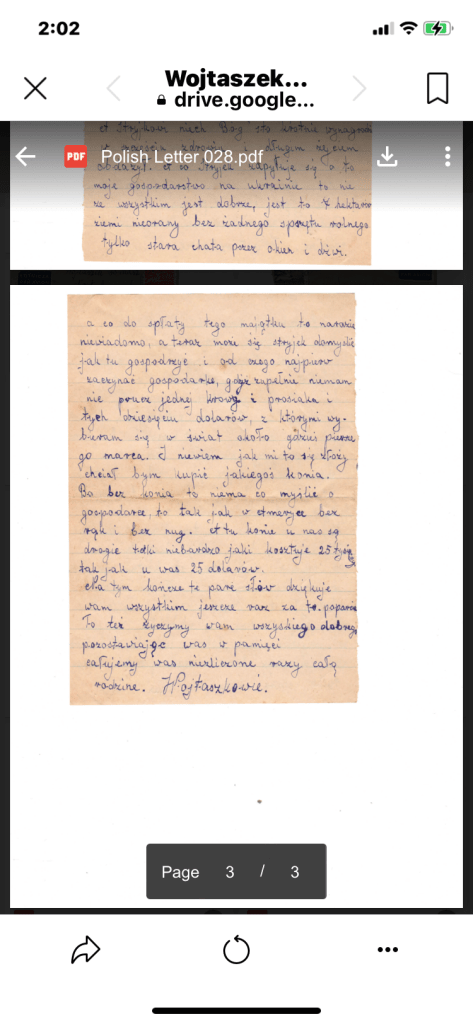 2:02
Wojtaszek...
drive.google...
PDF Polish Letter 028.pdf
moje gospodarstwo na ukrainie to nie
ze wszystkim jest dobrze, jest to 7 hektarow
ziemi nieorany bez żadnego sprzętu rolnego
tylko stara chata przez okien i dzwi.
a co do spłaty tego majątku to narazie
niewiadomo, a teraz może się stryjek domyślić
jak tu gospodrzyć i od czego najpierw
zaczynać gospodarkę, gdyż zupełnie niemam
nic prucz jednej krowy i prosiaka i
tych dziesięciu dolarów, z którymi wy-
bieram się w świat około gdzieś pierwsze
go marca. I niewiem jak mi to się złoży
chciał bym kupić jakiegoś konia.
Bo bez konia to niema co myślić o
gospodarce, to tak jak w ameryce bez
rąk i bez nug. A tu konie u nas są
drogie taki niebardzo jaki kosztuje 25 tyś
tak jak u was 25 dolarów.
Na tym kończe te pare słów dziękuje
wam wszystkim jeszcze raz za to.
To też życzymy wam wszyskiego dobrego
pozostawiając was w pamięci
całujemy was niezliczone razy całą
rodzine. Wojtaszkowie.
Page 3 / 3